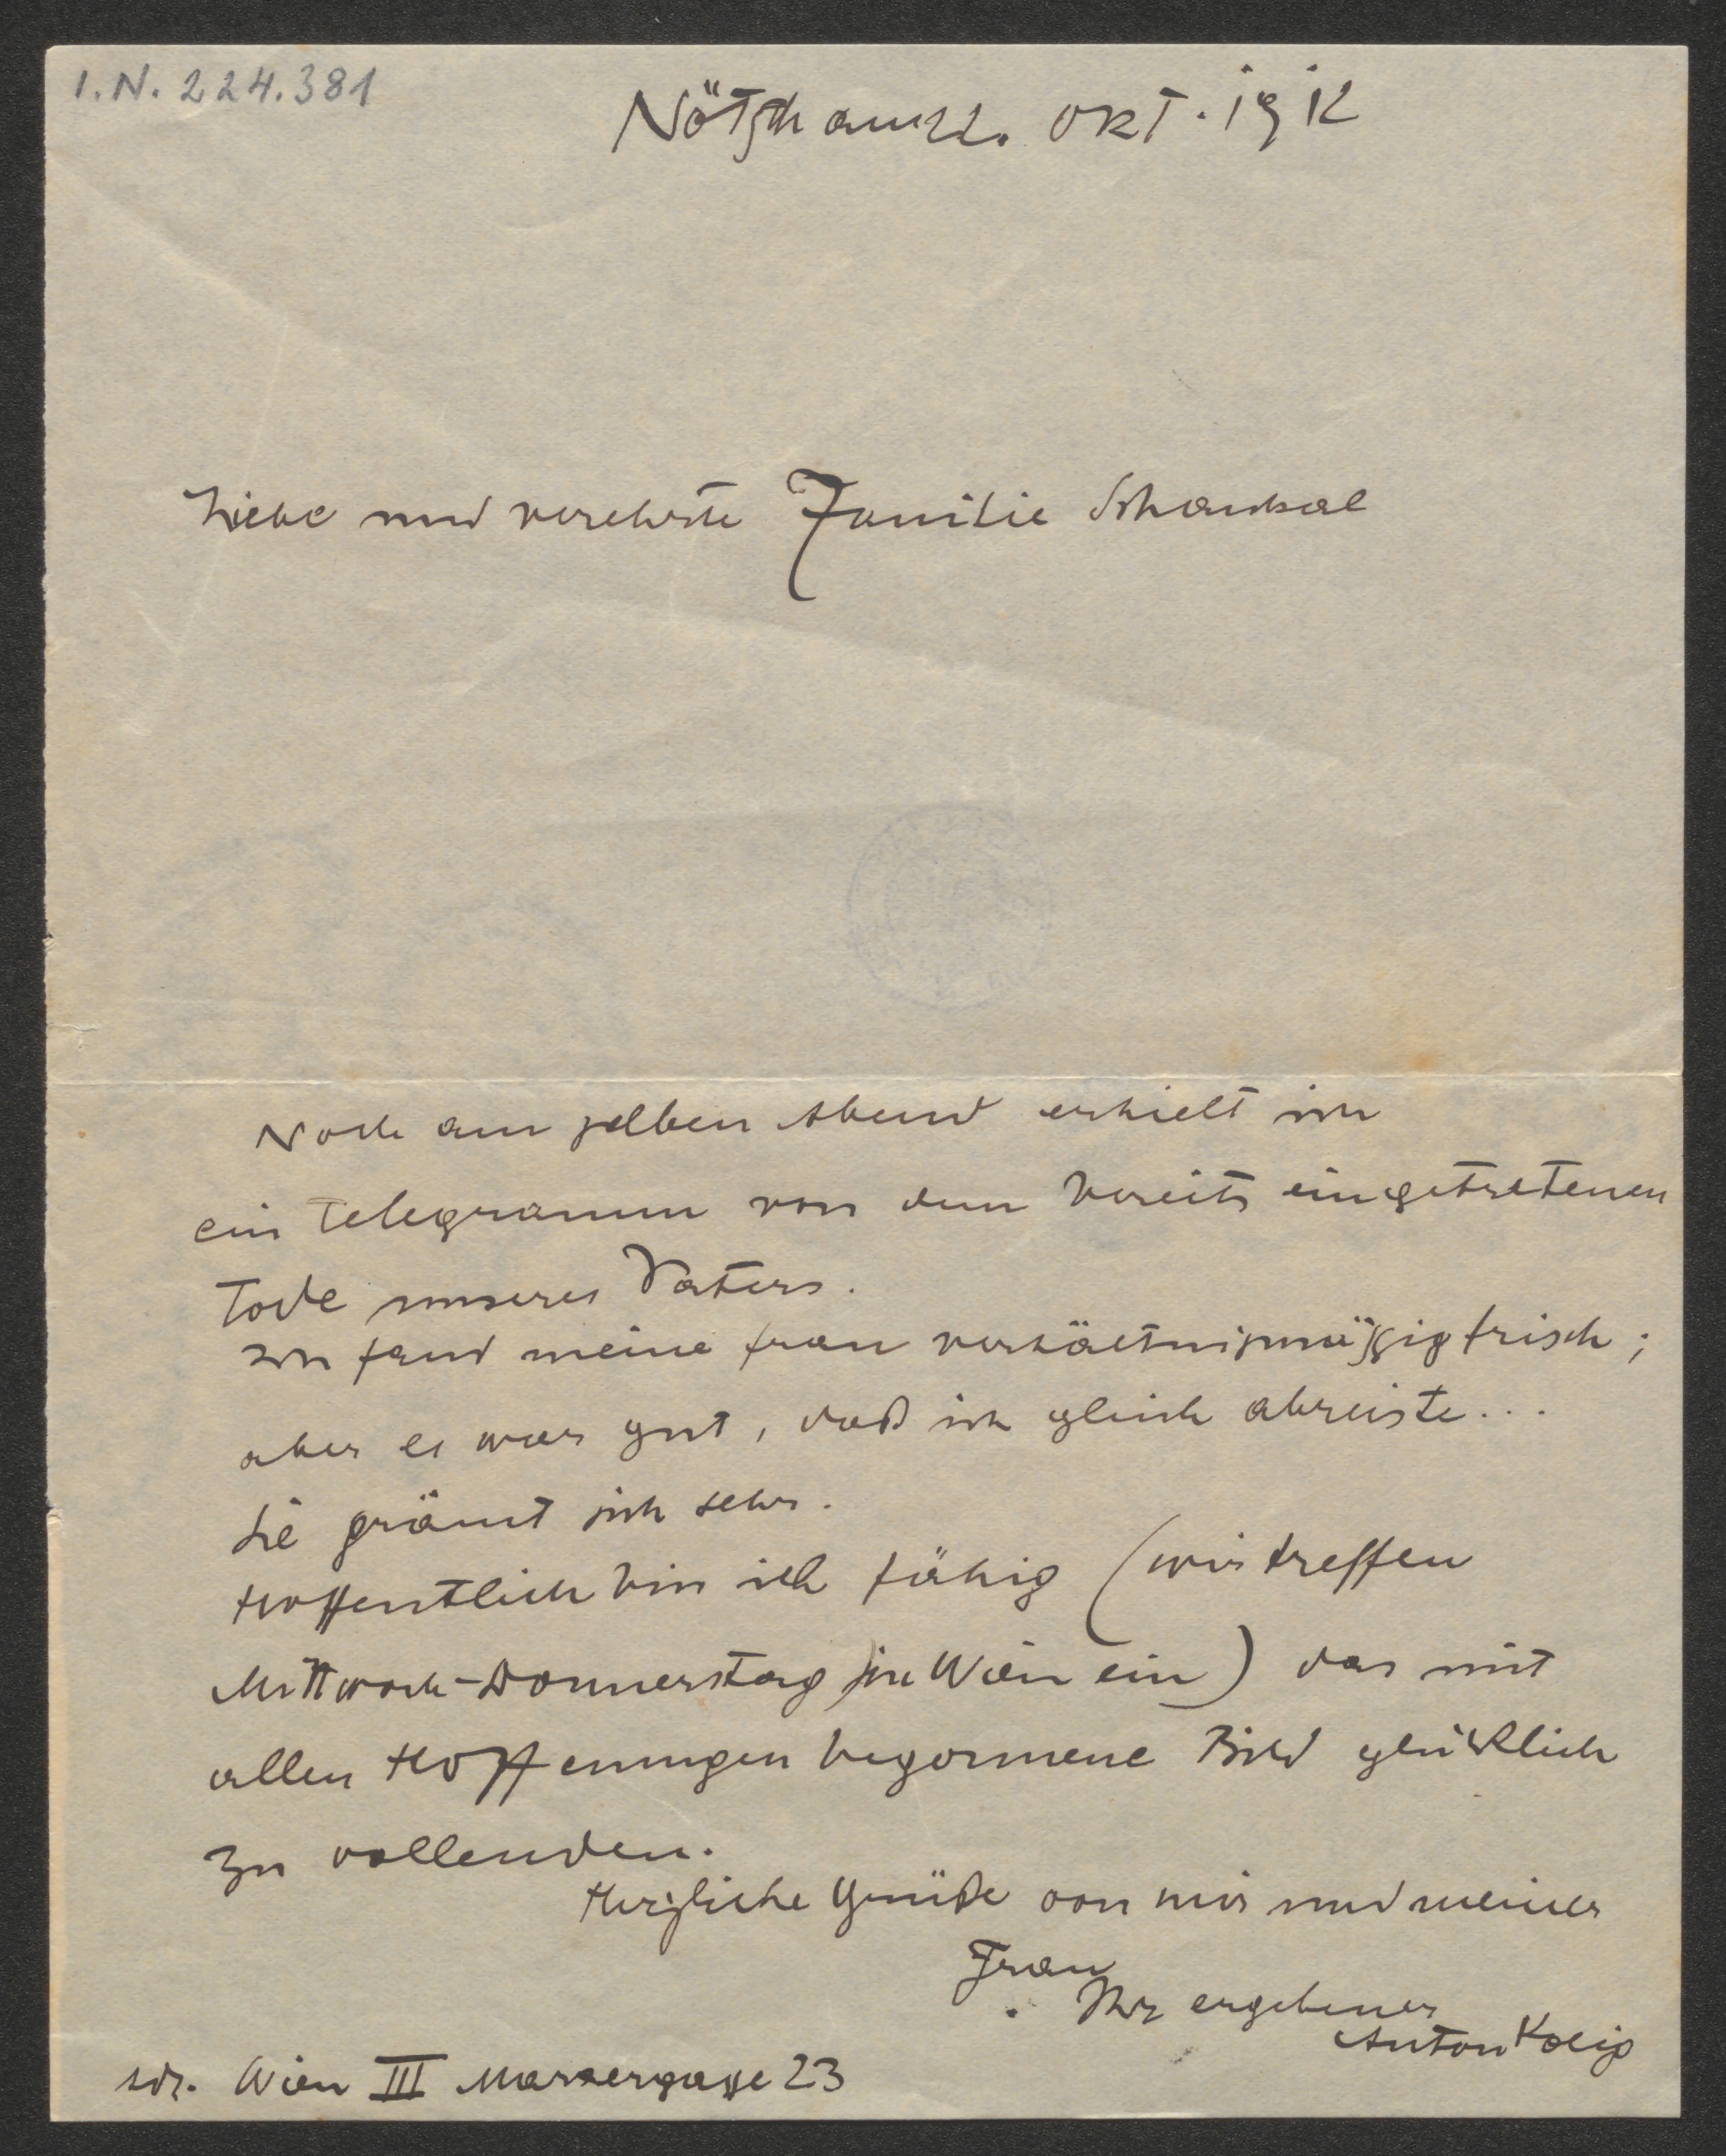 I.N. 224.381
Nötsch am 22. Okt. 1912
Liebe und verehrte Familie Schaukal
Noch am selben Abend erhielt ich
ein Telegramm von dem bereits eingetretenen
Tode unseres Vaters.
Ich fand meine Frau verhältnismässig frisch;
aber es war gut, daß ich gleich abreiste...
Sie grämt sich sehr.
Hoffentlich bin ich fähig (wir treffen
Mittwoch-Donnerstag in Wien ein) das mit
allen Hoffenungen begonnene Bild glücklich
zu vollenden.
Herzliche Grüße von mir und meiner
Frau
Ihr ergebener
Anton Kolig
adr. Wien III Marxergasse 23